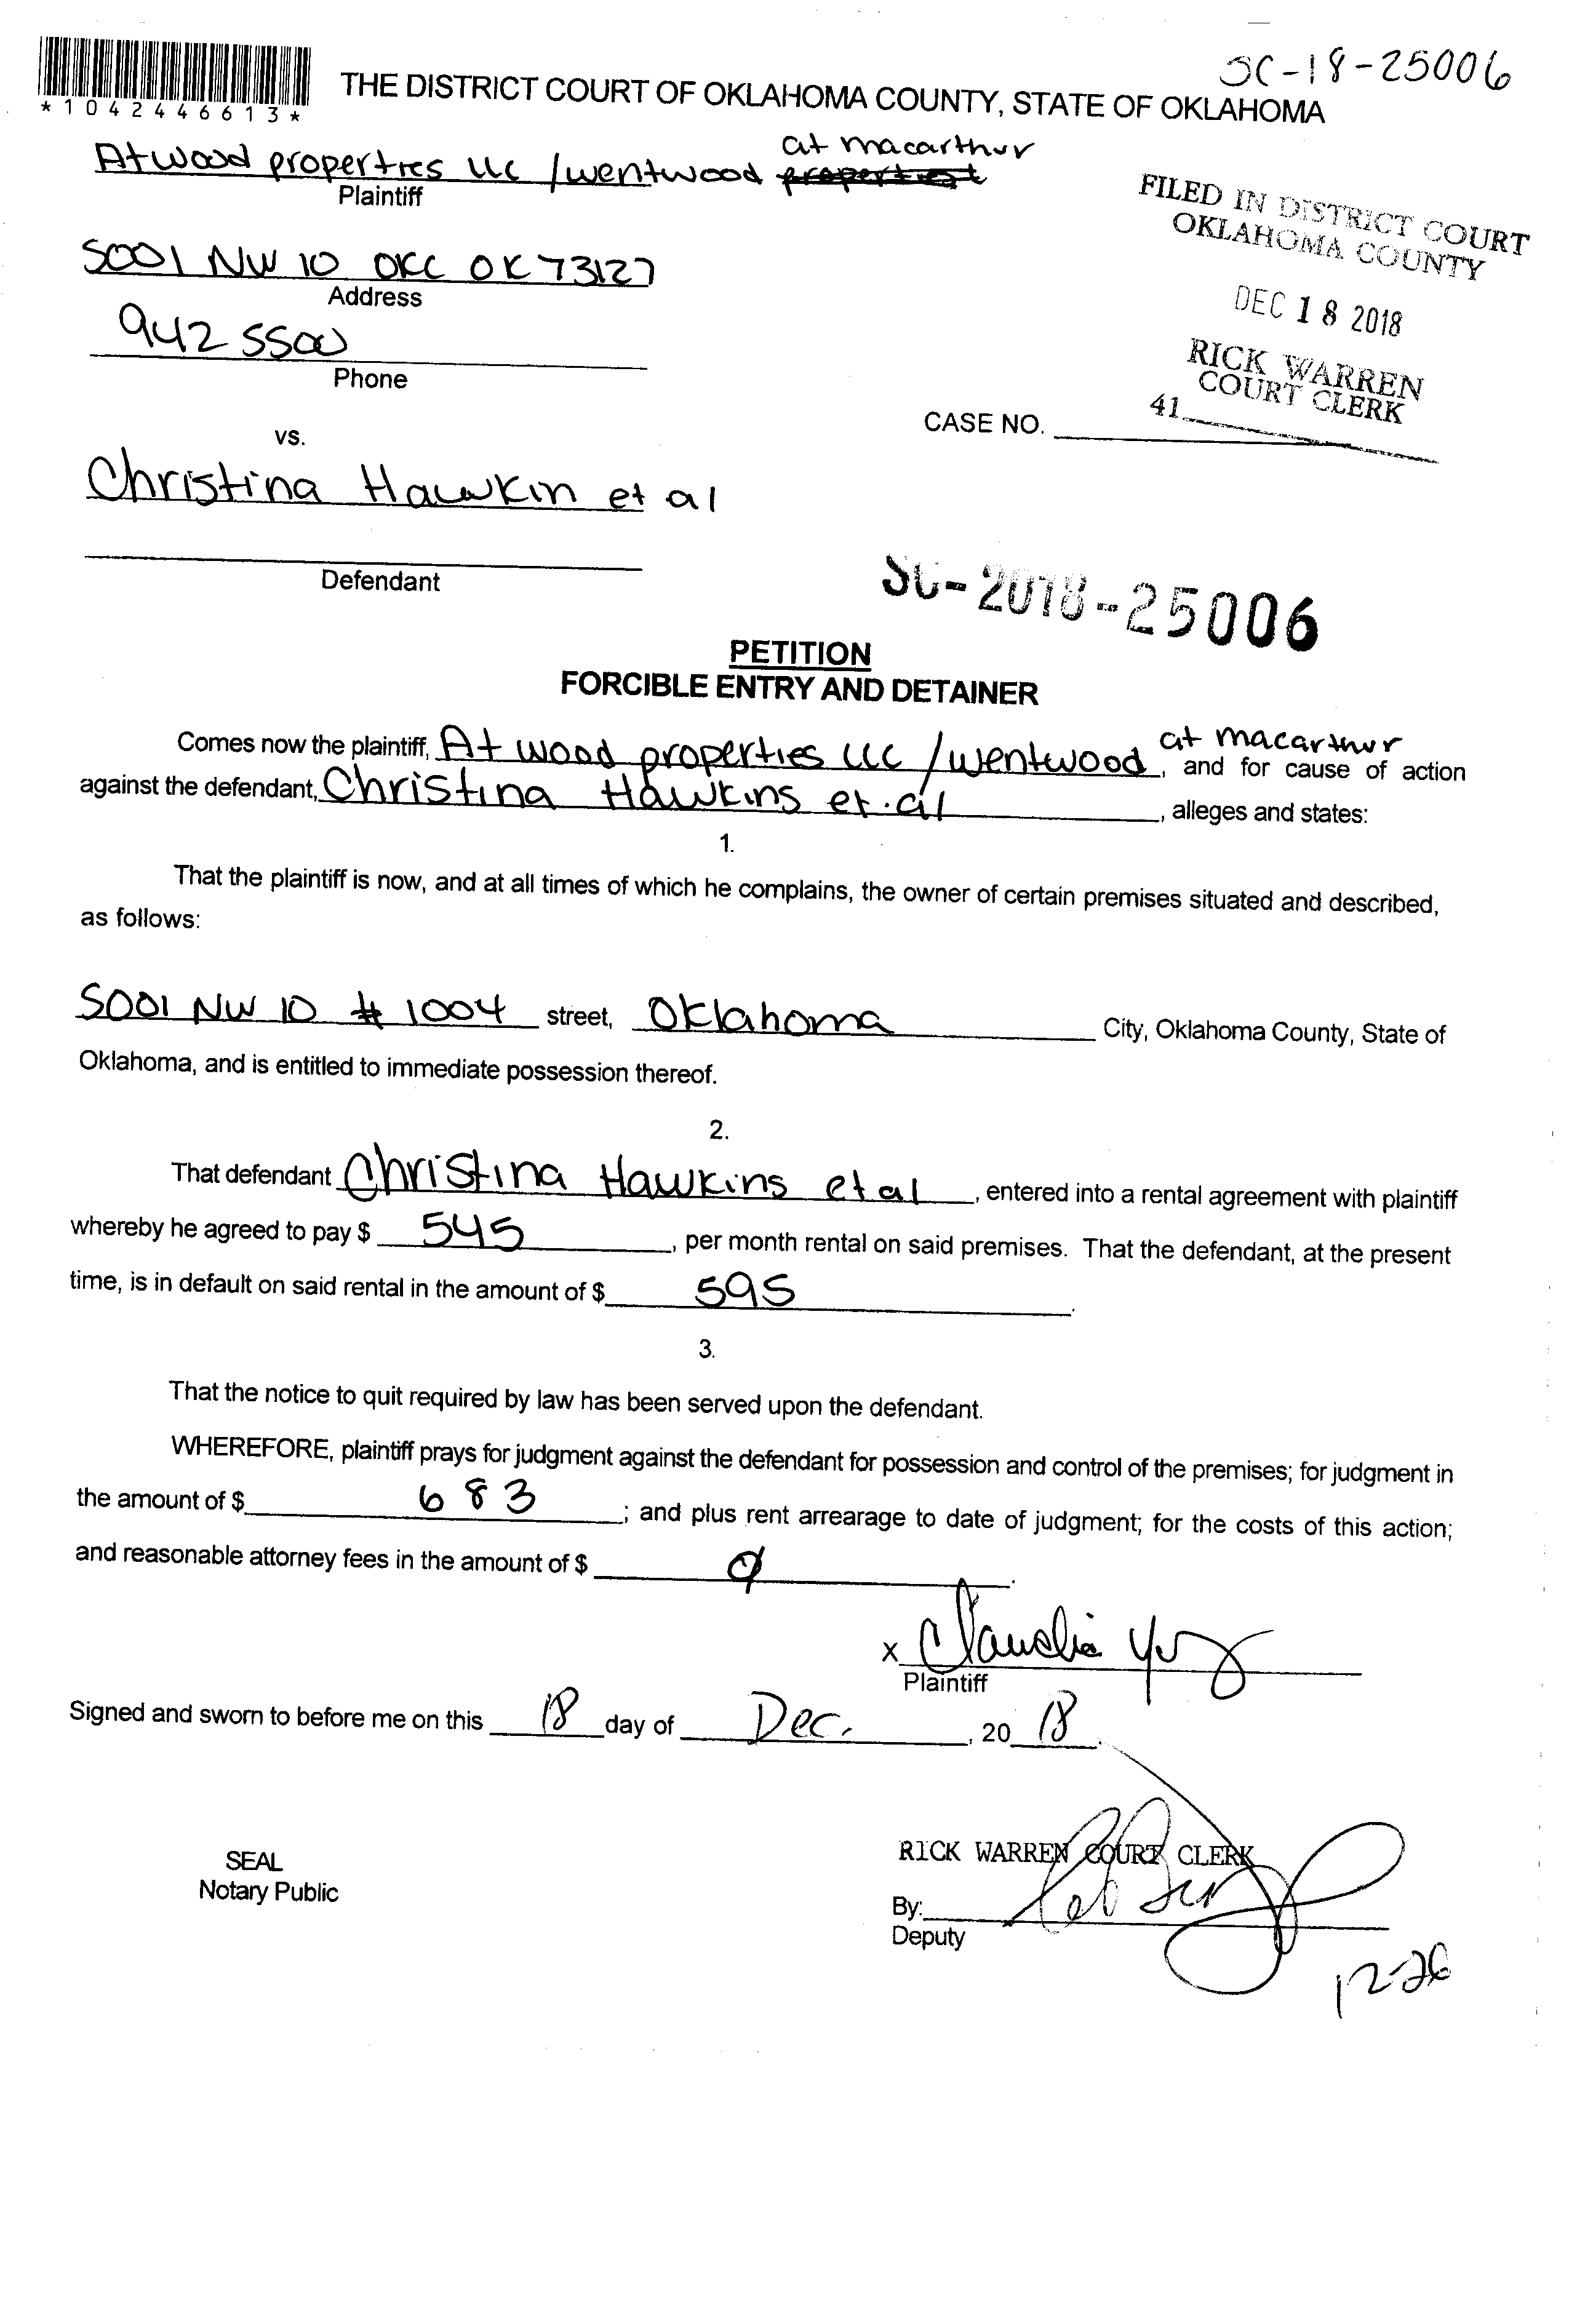 SC-18-25006
*1042446613*
THE DISTRICT COURT OF OKLAHOMA COUNTY, STATE OF OKLAHOMA
at macarthur
Atwood properties llc / wentwood
Plaintiff
FILED IN DISTRICT COURT
OKLAHOMA COUNTY
5001 NW 10 OKC OK 73127
Address
DEC 18 2018
942 5500
Phone
RICK WARREN
COURT CLERK
41
CASE NO.
vs.
Christina Hawkin et al
Defendant
SC-2018-25006
PETITION
FORCIBLE ENTRY AND DETAINER
at macarthur
Comes now the plaintiff, At wood properties llc / wentwood, and for cause of action
against the defendant, Christina Hawkins et.al, alleges and states:
1.
That the plaintiff is now, and at all times of which he complains, the owner of certain premises situated and described,
as follows:
5001 NW 10 # 1004 street, Oklahoma City, Oklahoma County, State of
Oklahoma, and is entitled to immediate possession thereof.
2.
That defendant Christina Hawkins et al, entered into a rental agreement with plaintiff
whereby he agreed to pay $ 545, per month rental on said premises. That the defendant, at the present
time, is in default on said rental in the amount of $ 595.
3.
That the notice to quit required by law has been served upon the defendant.
WHEREFORE, plaintiff prays for judgment against the defendant for possession and control of the premises; for judgment in
the amount of $ 683; and plus rent arrearage to date of judgment; for the costs of this action;
and reasonable attorney fees in the amount of $ 0.
x Claudia
Plaintiff
Signed and sworn to before me on this 18 day of Dec., 20 18.
SEAL
Notary Public
RICK WARREN COURT CLERK
By:
Deputy
12-26